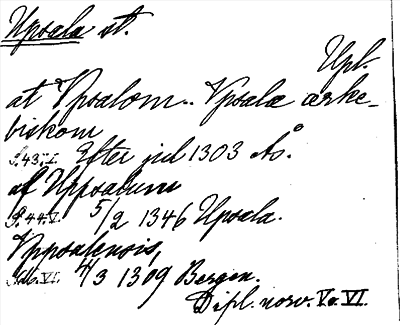 Upsala st.
Upl.
at Vpsalom.. Vpsalæ ærke-
biskom
S.43.I. Efter jul 1303 Ås.
af Uppsalum
S.44.V. 5/2 1346 Upsala.
Vppsalensis,
VI. 4/3 1309 Bergen.
Dipl. norv. V o. VI.